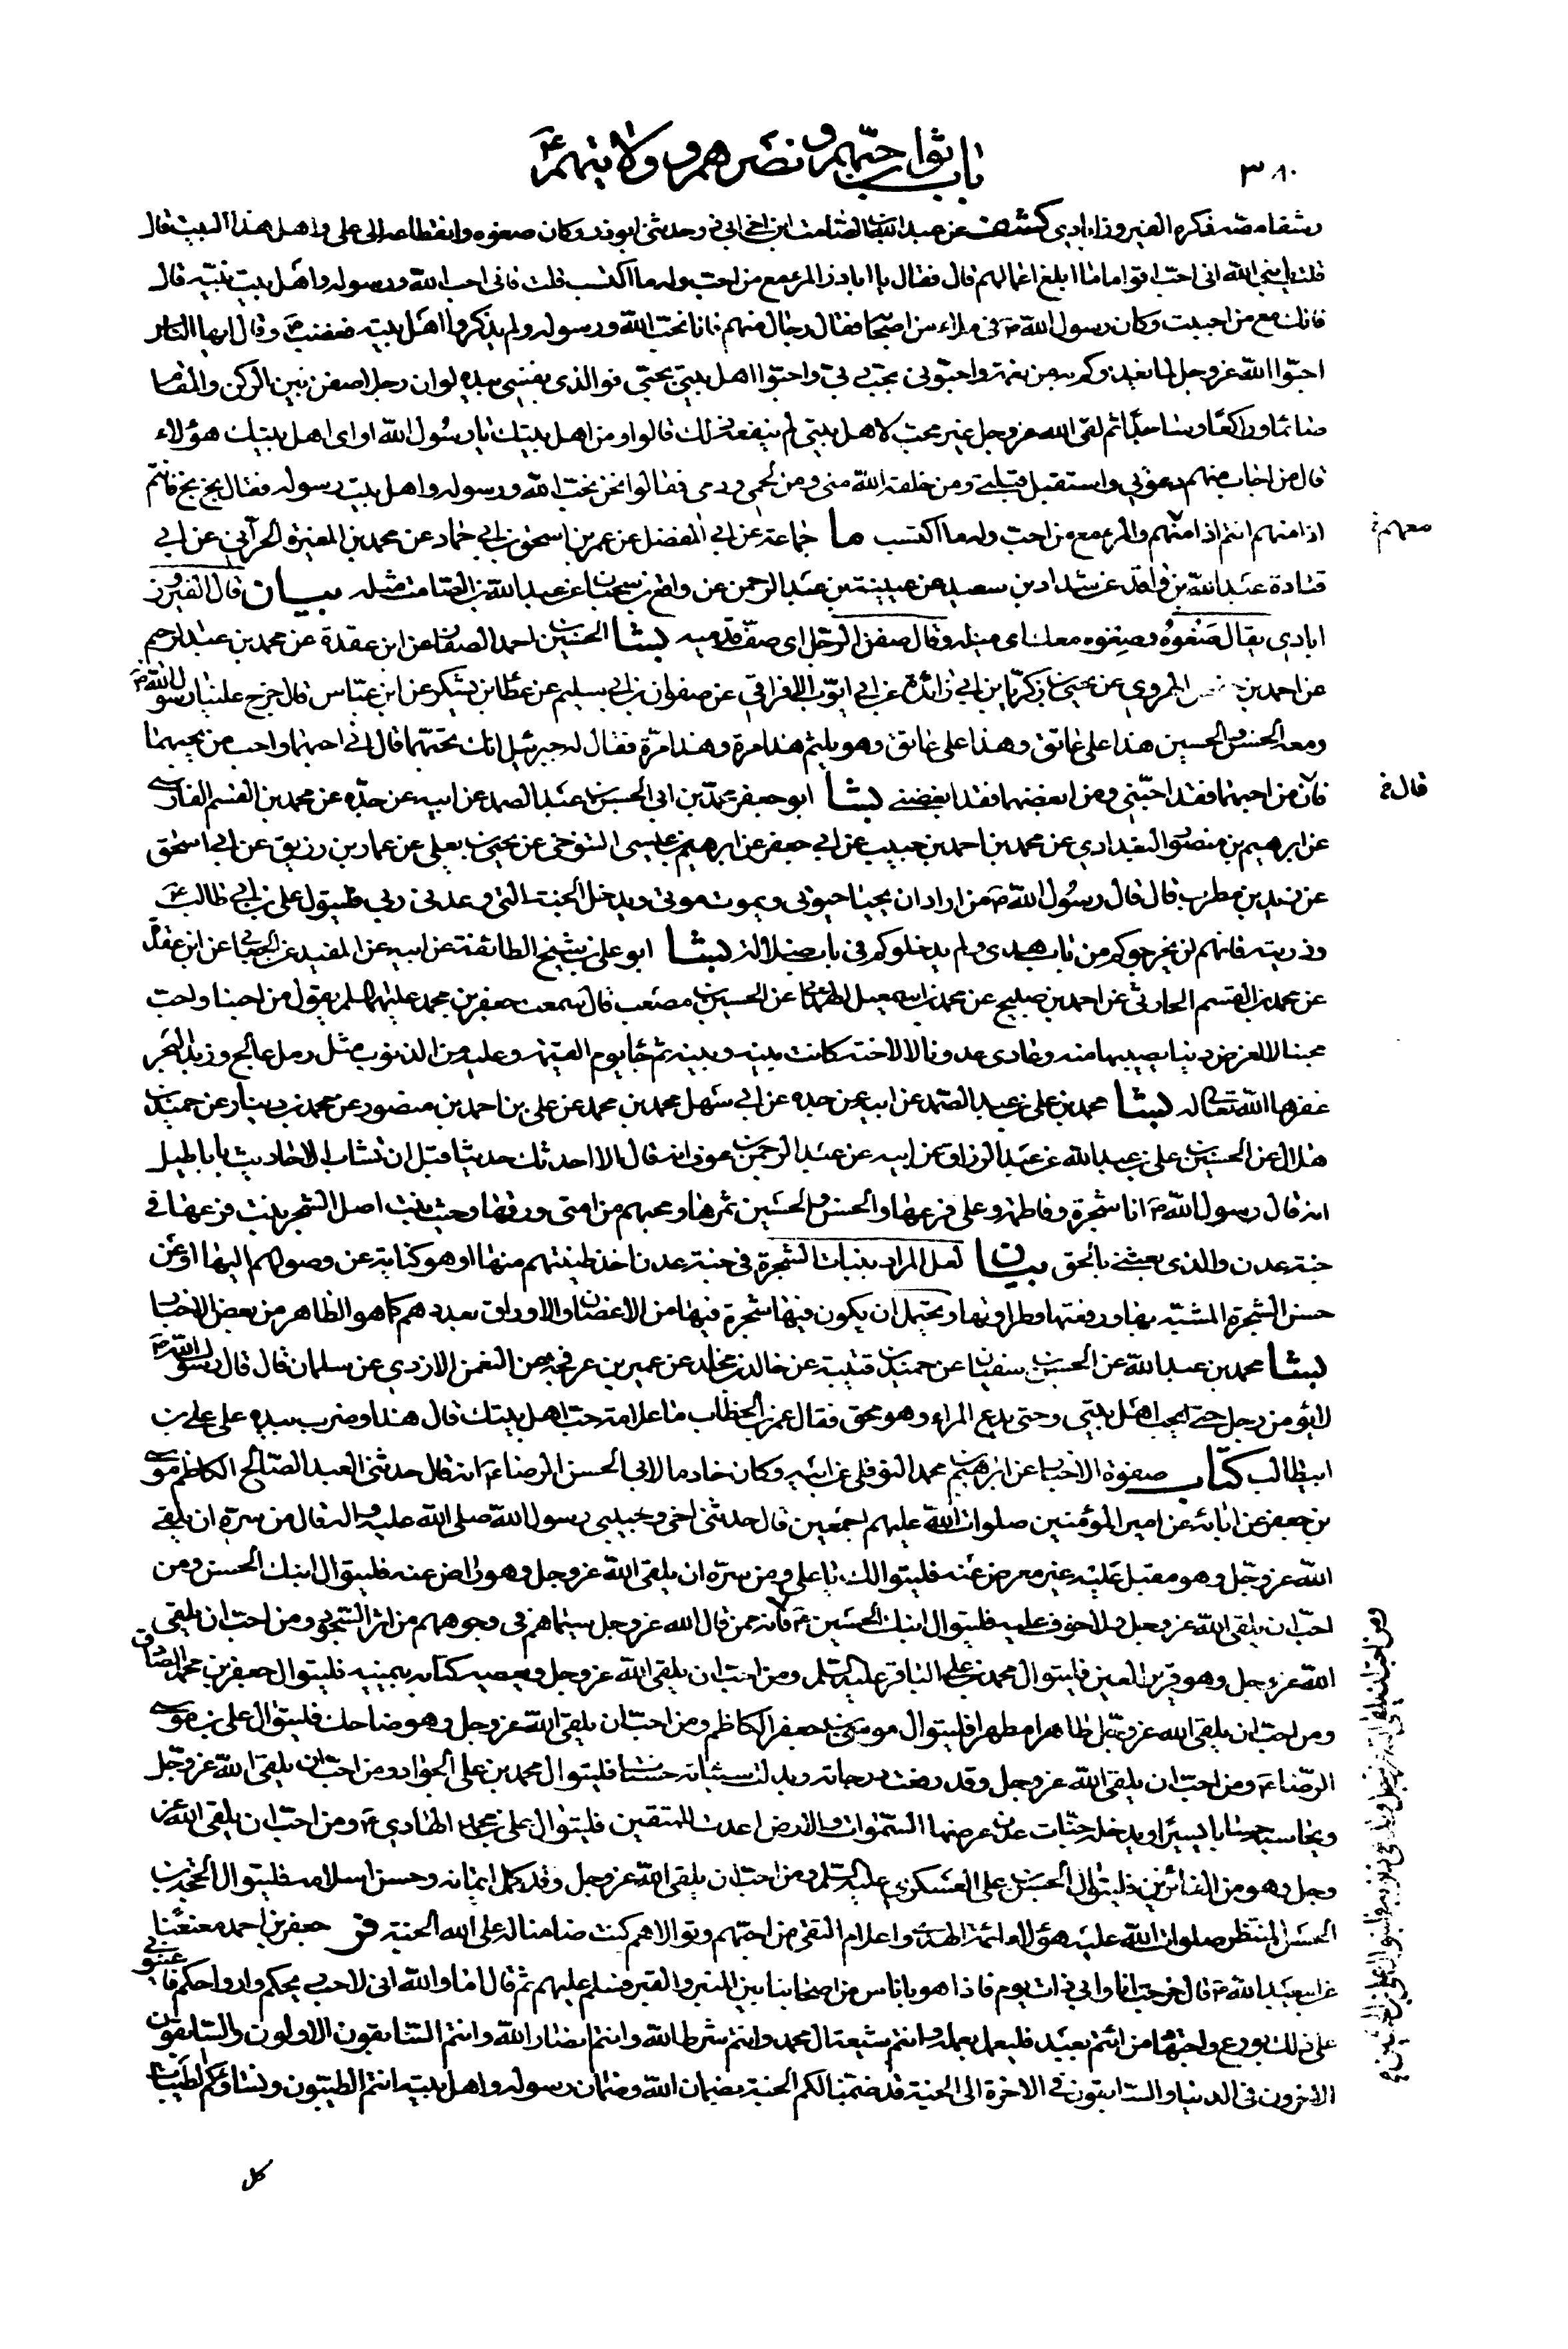 ٣٨٠
باب ثواب حبّهم ونصرهم وولايتهم ع
رشفا مصّه فكره الفيروزابادي كشف عن عبد الله بن الصامت ابن اخي ابي ذر قال حدثني ابو ذر وكان صغوه وانقطاعه الى علي واهل هذا البيت قال
قلت يا نبي الله اني احب اقواما ما ابلغ اعمالهم قال فقال يا اباذر المرء مع من احب وله ما اكتسب قلت فاني احب الله ورسوله واهل بيت نبيّه قال
فانك مع من احببت وكان رسول الله ص في ملاء من اصحابه فقال رجال منهم فانا نحبّ الله ورسوله ولم يذكروا اهل بيته فغضب ص وقال ايها الناس
احبّوا الله عز وجل لما يغذوكم به من نعمة واحبّوني بحبّ ربي واحبّوا اهل بيتي بحبّي فوالذي نفسي بيده لو ان رجلا صفن بين الركن والمقام
صائما وراكعا وساجدا ثم لقي الله عز وجل غير محب لاهل بيتي لم ينفعه ذلك قالوا ومن اهل بيتك يا رسول الله او اى اهل بيتك هؤلاء
قال من اجاب منهم دعوتي واستقبل قبلتي ومن خلقه الله مني ومن لحمي ودمي فقالوا نحن نحبّ الله ورسوله واهل بيت رسوله فقال بخ بخ فانتم
اذا منهم انتم اذا منهم والمرء مع من احب وله ما اكتسب ما جماعة عن ابي المفضل عن عمر بن اسحق بن ابي حماد عن محمد بن المغيرة الحرّاني عن ابي
معهم خ
قتادة عبد الله بن واقد عن شداد بن سعيد عن عيينة بن عبد الرحمن عن واقع بن سحبان عن عبد الله بن الصامت مثله بيان قال الفيروز
ابادي يقال صَغْوُهُ وصِغْوه معك اى ميله وقال صفن الرّجل اى صفّ قدميه بشا الحسين بن احمد الصفار عن ابن عقدة عن محمد بن عبد الرحيم
عن احمد بن الهروي عن يحيى بن زكريا بن ابي زائدة عن ابي ايوب الافراقي عن صفوان بن ابي سليم عن عطا بن يشكر عن ابن عبّاس قال خرج علينا رسول الله ص
ومعه الحسن والحسين هذا على عاتق وهذا على عاتق وهو يلثم هذا مرة وهذا مرّة فقال له جبرئيل انك تحبّهما قال اني احبهما واحب من يحبهما
فان من احبهما فقد احبّني ومن ابغضهما فقد ابغضني بشا ابو جعفر محمّد بن ابي الحسن بن عبد الصمد عن ابيه عن جدّه عن محمد بن القسم الفارسي
قال خ
عن ابرهيم بن منصور البغدادي عن محمد بن احمد بن حبيب عن ابي جعفر عن ابرهيم بن عيسى التنوخي عن يحيى بن يعلى عن عمار بن رزيق عن ابي اسحق
عن زيد بن مطرب قال قال رسول الله ص من اراد ان يحيا حيوتي ويموت موتي ويدخل الجنة التي وعدني ربي فليتول علي بن ابي طالب ع
وذريته فانهم لن يخرجوكم من باب هدى ولم يدخلوكم في باب ضلالة بشا ابو علي بن شيخ الطائفة عن ابيه عن المفيد عن الجعابي عن ابن عقدة
عن محمد بن القسم الحارثي عن احمد بن صبيح عن محمد بن اسمعيل الهمداني عن الحسين بن مصعب قال سمعت جعفر بن محمد عليهما السلم يقول من احبنا واحب
محبنا لا لغرض دنيا يصيبها منه وعادى عدونا لا لاحنة كانت بينه وبينه ثم جا يوم القيمة وعليه من الذنوب مثل رمل عالج وزبد البحر
غفرها الله تعالى له بشا محمد بن علي بن عبد الصمد عن ابيه عن جده عن ابي سهل محمد بن محمد عن علي بن احمد بن منصور عن محمد بن دينار عن حميد بن
هلال عن الحسين بن علي بن عبد الله عن عبد الرزاق عن ابيه عن عبد الرحمن بن عوف انه قال الا احدثك حديثا قبل ان تشاب الاحاديث باباطيل
انه قال رسول الله ص انا شجرة وفاطمة وعلي فرعها والحسن والحسين ثمرها ومحبهم من امتي ورقها وحيث نبت اصل الشجر نبت فرعها في
جنة عدن والذي بعثني بالحق بيان لعل المراد بنبات الشجرة في جنة عدن اخذ طينتهم منها او هو كناية عن وصولهم اليها او عن
حسن الشجرة المشبّه بها ورفعتها وطراوتها ويحتمل ان يكون فيها شجرة فيها من الاغصان والاوراق بعددهم كما هو الظاهر من بعض الاخبار
بشا محمد بن عبد الله عن الحسين بن سفيان عن حميد بن قتيبة عن خالد بن مخلد عن عمير بن عرفجة عن النعمن الازدي عن سلمان قال قال رسول الله ص
لا يؤمن رجل حتى يحب اهل بيتي وحتى يدع المراء وهو محق فقال عمر بن الخطاب ما علامة حب اهل بيتك قال هذا وضرب بيده على علي بن
ابيطالب كتاب صفوة الاخبار عن ابرهيم بن محمد النوفلي عن ابيه وكان خادما لابي الحسن الرضا ع انه قال حدثني العبد الصّالح الكاظم موسى
بن جعفر عن ابائه عن امير المؤمنين صلوات الله عليهم اجمعين قال حدثني اخي وحبيبي رسول الله صلى الله عليه واله قال من سره ان يلقى
الله عز وجّل وهو مقبل عَليه غير معرض عنه فليتوالك يا علي ومن سرّه ان يلقى الله عز وجل وهو راض عنه فليتوال ابنك الحسن ومن
احب ان يلقى الله عز وجل ولا خوف عليه فليتوال ابنك الحسين ع فانه ممن قال الله عز وجل سيماهم في وجوههم من اثر السّجود ومن احب ان يلقى
الله عز وجل وهو قرير العين فليتوال محمد بن علي الباقر عليه السلم ومن احب ان يلقى الله عز وجل ويعطيه كتابه بيمينه فليتوال جعفر بن محمد الصادق
ومن احب ان يلقى الله عز وجّل طاهرا مطهرا فليتوال موسى بن جعفر الكاظم ومن احبّ ان يلقى الله عز وجل وهو ضاحك فليتوال علي بن موسى
الرّضا ع ومن احبّ ان يلقى الله عز وجل وقد رفعت درجاته وبدلت سيئاته حسنات فليتوال محمد بن علي الجواد ومن احبّ ان يلقى الله عز وجّل
ويحاسبه حسابا يسيرا ويدخله جنّات عدن عرضها السّموات والارض اعدت للمتقين فليتوال علي بن محمد الهادي ع ومن احبّ ان يلقى الله عز
وجل وهو من الفائزين فليتوال الحسن بن علي العسكري عليه السّلم ومن احبّ ان يلقى الله عز وجل وقد كمل ايمانه وحسن اسلامه فليتوال الحجة بن
الحسن المنتظر صلوات الله عليه هؤلاء ائمة الهدى واعلام التقى من احبّهم وتوالاهم كنت ضامنا له على الله الجنة فر جعفر بن احمد معنعنا
عن ابيعبد الله ع قال خرجت انا وابي ذات يوم فاذا هو باناس من اصحابنا بين المنبر والقبر فسلم عليهم ثم قال اما والله اني لاحب ريحكم وارواحكم فاعينوني
على ذلك بورع واجتهاد من ائتم بعبد فليعمل بعمله وانتم شيعة ال محمد وانتم شرط الله وانتم انصار الله وانتم السّابقون الاولون والسّابقون
الاخرون في الدنيا والسّابقون في الاخرة الى الجنة قد ضمنّا لكم الجنة بضمان الله وضمان رسوله واهل بيته انتم الطيبون ونساؤكم الطيبات
كل